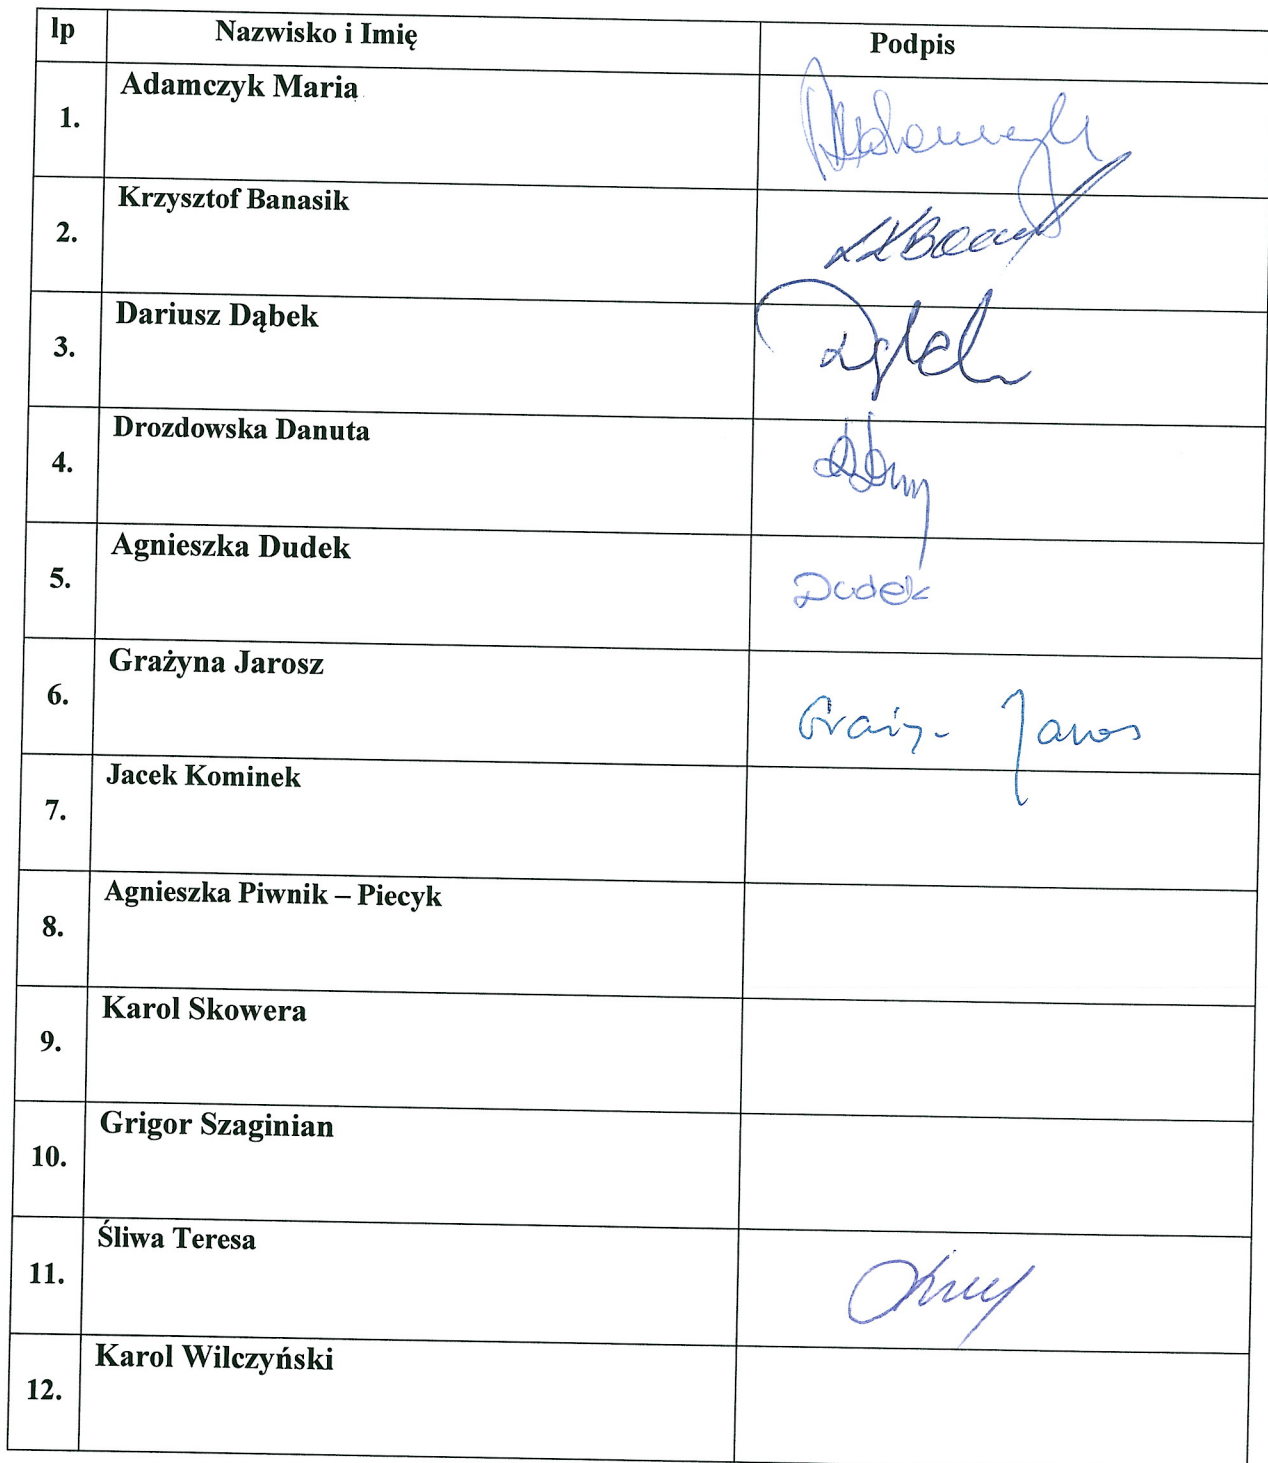 lp Nazwisko i Imię Podpis
1. Adamczyk Maria
2. Krzysztof Banasik
3. Dariusz Dąbek
4. Drozdowska Danuta
5. Agnieszka Dudek Dudek
6. Grażyna Jarosz
7. Jacek Kominek
8. Agnieszka Piwnik – Piecyk
9. Karol Skowera
10. Grigor Szaginian
11. Śliwa Teresa
12. Karol Wilczyński